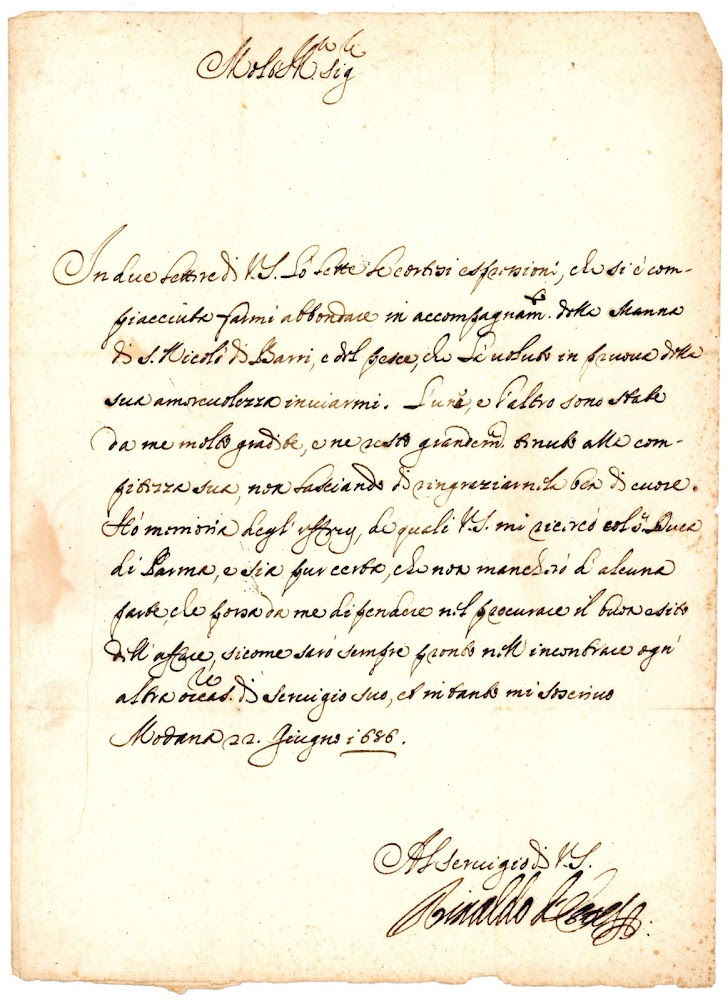 Molto Ill.re Sig.re
In due lettere di V.S. hò lette le cortesi espressioni, che si è com-
piacciuta farmi abbondare in accompagnam.to della Manna
di S. Nicolò di Barri, e del pesce, che hà voluto in pruova della
sua amorevolezza inviarmi. L'una, e l'altro sono state
da me molto gradite, e ne resto grandem.te tenuto alla com-
pitezza sua, non lasciando di ringraziarnela ben di cuore.
Hò memoria degl'uffizij, de quali V.S. mi ricercò col S.r Duca
di Parma, e sia pur certa, che non mancherò d'alcuna
parte, che possa da me dipendere nel procurare il buon esito
dell'affare, sicome sarò sempre pronto nell'incontrare ogn'
altra occas.ne di servigio suo, et intanto mi soscrivo
Modana 22. Giugno 1686.
Al servigio di V.S.
Rinaldo d'Este